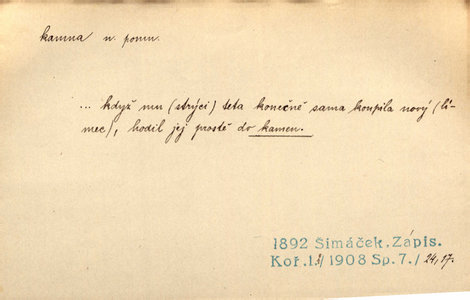 kamna n. pomn.
... když mu (strýci) teta konečně sama koupila nový (lí-
mec), hodil jej prostě do kamen.
1892 Šimáček, Zápis.
Koř.1.²/1908 Sp.7./24,17.